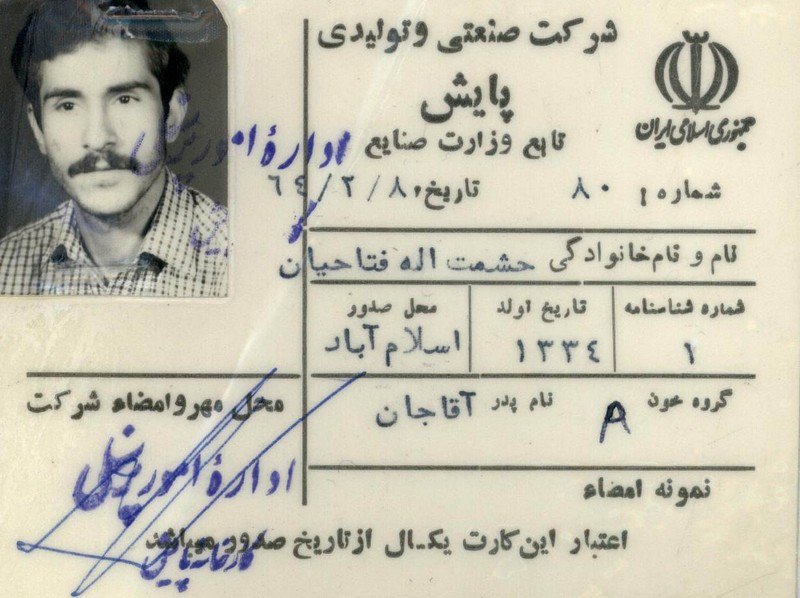 شرکت صنعتی و تولیدی
پایش
تابع وزارت صنایع
جمهوری اسلامی ایران
شماره: ۸۰
تاریخ: ٦٤/۲/۸
ادارهٔ امور
نام و نام خانوادگی حشمت اله فتاحیان
شماره شناسنامه
تاریخ تولد
محل صدور
۱
۱۳۳٤
اسلام آباد
گروه خون A
نام پدر آقاجان
محل مهر و امضاء شرکت
ادارهٔ امور
نمونه امضاء
اعتبار این کارت یکسال از تاریخ صدور میباشد